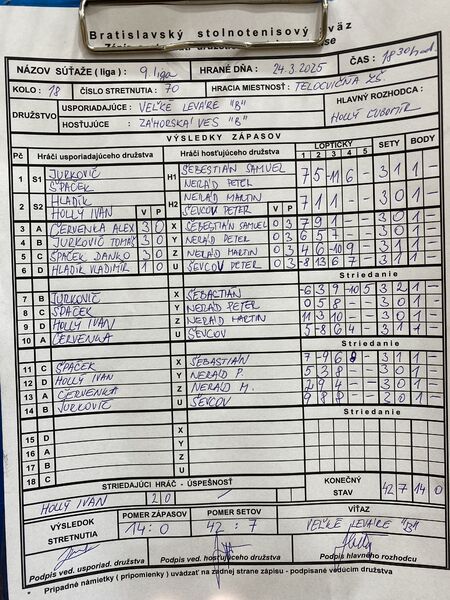 Bratislavský stolnotenisový zväz
NÁZOV SÚŤAŽE ( liga ) : 9. liga HRANÉ DŇA : 24.3.2025 ČAS : 18 30 hod.
KOLO : 18 ČÍSLO STRETNUTIA : 70 HRACIA MIESTNOSŤ: TELOCVIČŇA ZŠ.
DRUŽSTVO USPORIADAJÚCE : VEĽKÉ LEVÁRE "B" HLAVNÝ ROZHODCA :
HOSŤUJÚCE : ZÁHORSKÁ VES "B" HOLLÝ ĽUBOMÍR
VÝSLEDKY ZÁPASOV
Pč Hráči usporiadajúceho družstva Hráči hosťujúceho družstva LOPTIČKY SETY BODY
1 2 3 4 5
1 S1 JURKOVIČ ŠPAČEK H1 ŠEBESTIÁN SAMUEL NERÁD PETER 7 5 -11 6 - 3 1 1 -
2 S2 HLADÍK HOLLÝ IVAN H2 NERÁD MARTIN ŠEVCOV PETER 7 1 1 - 3 0 1 -
V P V P
3 A ČERVENKA ALEX 3 0 X ŠEBESTIÁN SAMUEL 0 3 7 9 1 3 0 1 -
4 B JURKOVIČ TOMÁŠ 3 0 Y NERÁD PETER 0 3 6 5 7 3 0 1 -
5 C ŠPAČEK DANKO 3 0 Z NERÁD MARTIN 0 3 4 6 -10 9 3 1 1 -
6 D HLADÍK VLADIMÍR 1 0 U ŠEVCOV PETER 0 3 -8 13 6 7 3 1 1 -
Striedanie
7 B JURKOVIČ X ŠEBASTIÁN -6 3 9 -10 5 3 2 1 -
8 C ŠPAČEK Y NERÁD PETER 0 5 8 3 0 1 -
9 D HOLLÝ IVAN Z NERÁD MARTIN 11 3 10 3 0 1 -
10 A ČERVENKA U ŠEVCOV 5 -8 6 4 3 1 1 -
Striedanie
11 C ŠPAČEK X ŠEBASTIÁN 7 -9 6 8 3 1 1 -
12 D HOLLÝ IVAN Y NERÁD P. 5 3 8 3 0 1 -
13 A ČERVENKA Z NERÁD M. 2 9 4 3 0 1 -
14 B JURKOVIČ U ŠEVCOV 9 8 8 3 0 1 -
Striedanie
15 D X
16 B Y
17 A Z
18 C U
STRIEDAJÚCI HRÁČ - ÚSPEŠNOSŤ KONEČNÝ STAV 42 7 14 0
HOLLÝ IVAN 2 0 -
VÝSLEDOK STRETNUTIA POMER ZÁPASOV POMER SETOV VÍŤAZ
14 : 0 42 : 7 VEĽKÉ LEVÁRE "B"
Podpis ved. usporiad. družstva Podpis ved. hosťujúceho družstva Podpis hlavného rozhodcu
Prípadné námietky ( pripomienky ) uvádzať na zadnej strane zápisu - podpísané vedúcim družstva